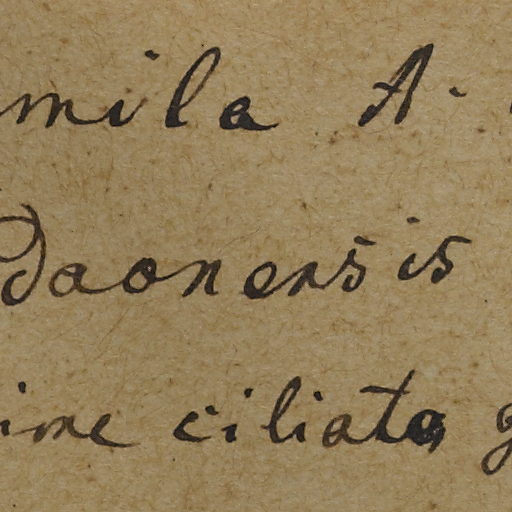 mila A.
daonensis
ime ciliata g